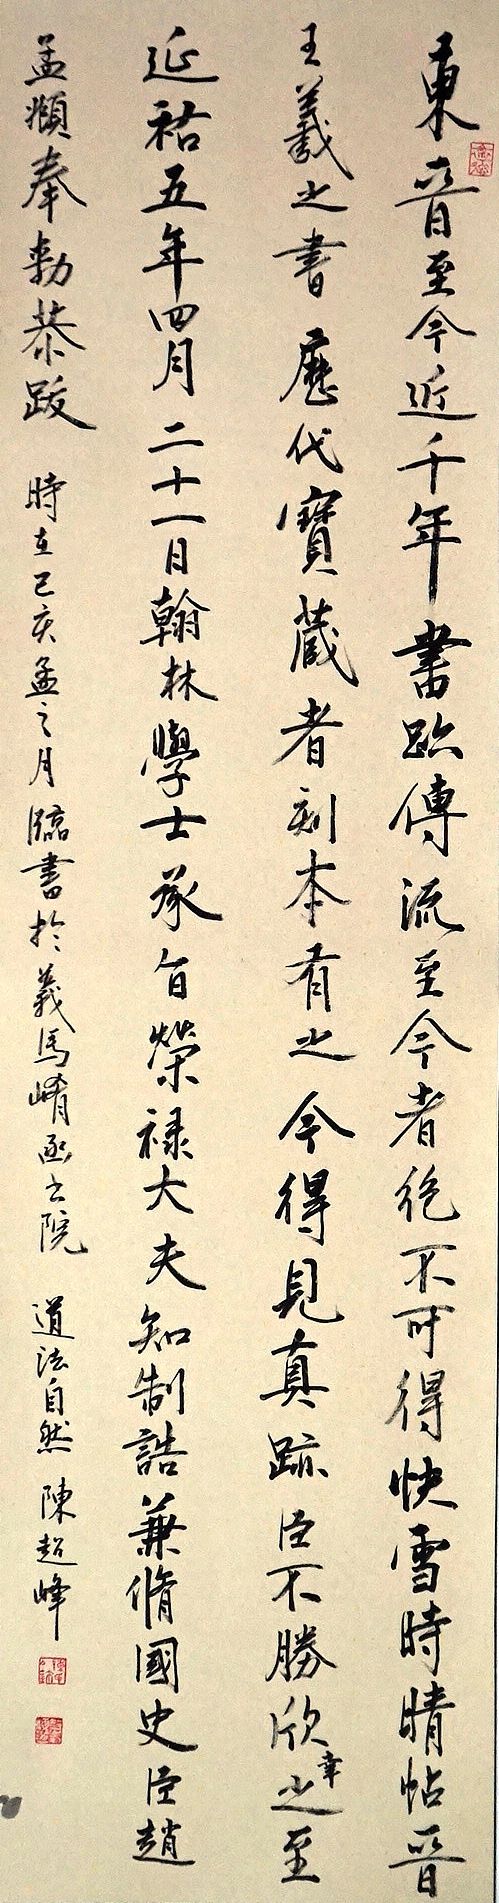 東晉至今近千年書跡傳流至今者絕不可得快雪時晴帖晉
王羲之書歷代寶藏者刻本有之今得見真跡臣不勝欣幸之至
延祐五年四月二十一日翰林學士承旨榮祿大夫知制誥兼脩國史臣趙
孟頫奉勅恭跋 時在己亥孟之月臨書於義馬崤函书院 道法自然 陳超峰